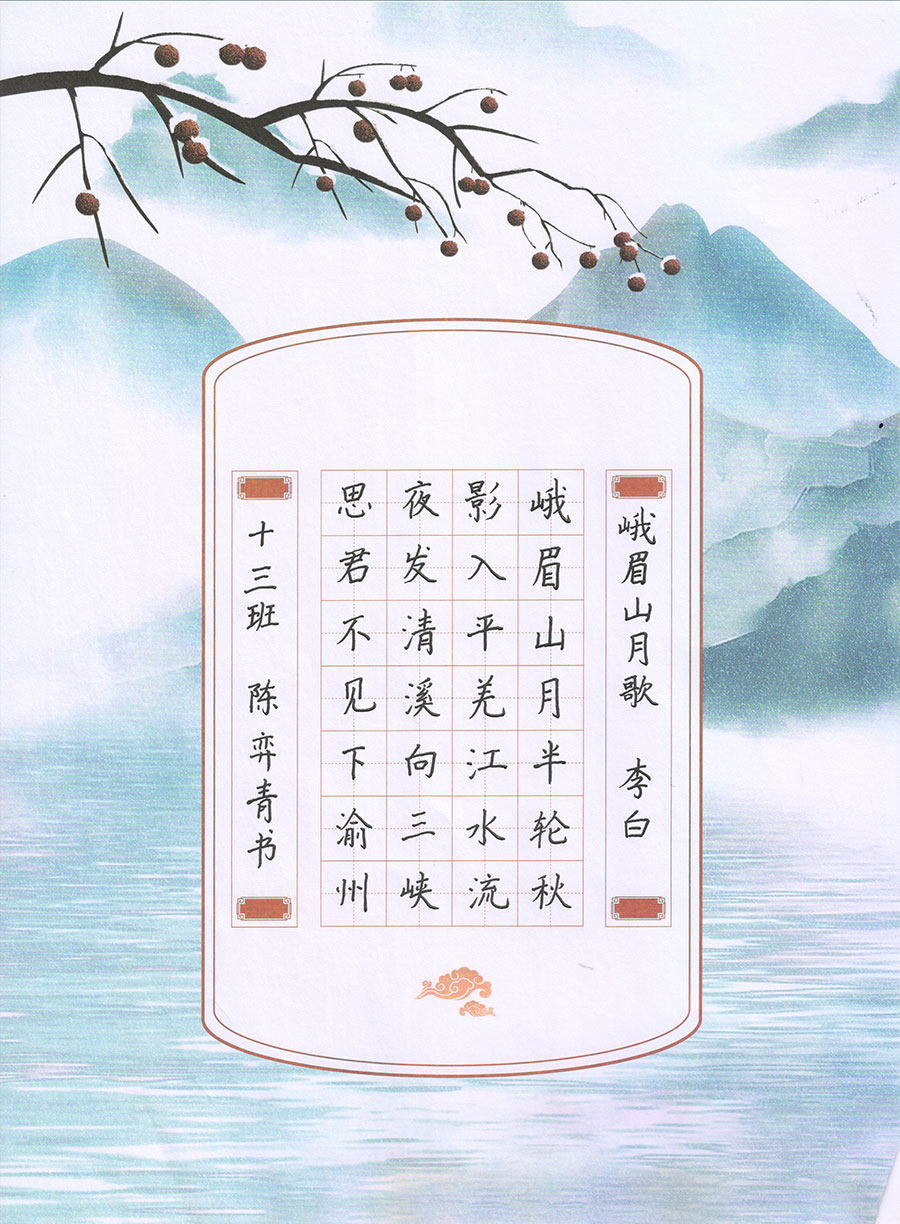 峨眉山月歌 李白
峨眉山月半轮秋
影入平羌江水流
夜发清溪向三峡
思君不见下渝州
十三班 陈弈青书